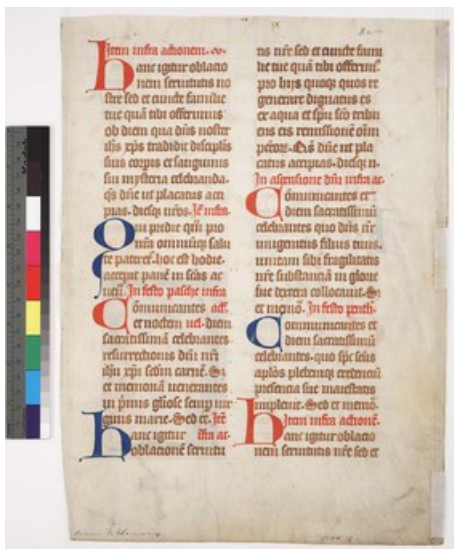 Item infra actionem.
Hanc igitur oblacio
nem servitutis no
stre sed et cuncte familie
tue quā tibi offerimus
ob diem qua dn̄s noster
ih̄s xp̄s tradidit discipłis
suis corpis et sanguinis
sui mysteria celebranda.
qs̄ dn̄e ut placatus acci
pias. diesq; nr̄os. Itē infra.
Qui pridie qm̄ pro
nr̄a omniumq; salu
te pateret. hoc est hodie.
accepit panē in scās ac
ven̄. In festo pasche infra
Cōmunicantes act̄.
et noctem vel diem
sacratissimā celebrantes
resurrectionis dn̄i nr̄i
ih̄u xp̄i scd̄m carnē. Sz
et memoriā venerantes
in p̄mis gl̄iose semp vir
ginis marie. Sed et. Itē
Hanc igitur īfra ac.
oblacionē servitu
tis nr̄e sed et cuncte fami
lie tue quā tibi offerim᷒.
pro hijs quoq; quos re
generare dignatus es
ex aqua et sp̄u sc̄o tribu
ens eis remissionē oīm
pctōr. Qs̄ dn̄e ut pla
catus accipias. diesq; n.
In ascensione dn̄i infra ac.
Cōmunicantes et
diem sacratissimū
celebrantes quo dn̄s nr̄
unigenitus filius tuus.
unitam sibi fragilitatis
nr̄e substanciā in glorie
tue dextera collocavit. Sz
et memō. In festo penth̄.
Communicantes et
diem sacratissimū
celebrantes. quo sp̄c sc̄us
apłos plebemq; credenciū
presencia sue maiestatis
implevit. Sed et memō.
Item infra actionē.
Hanc igitur oblacio
nem servitutis nr̄e sed et